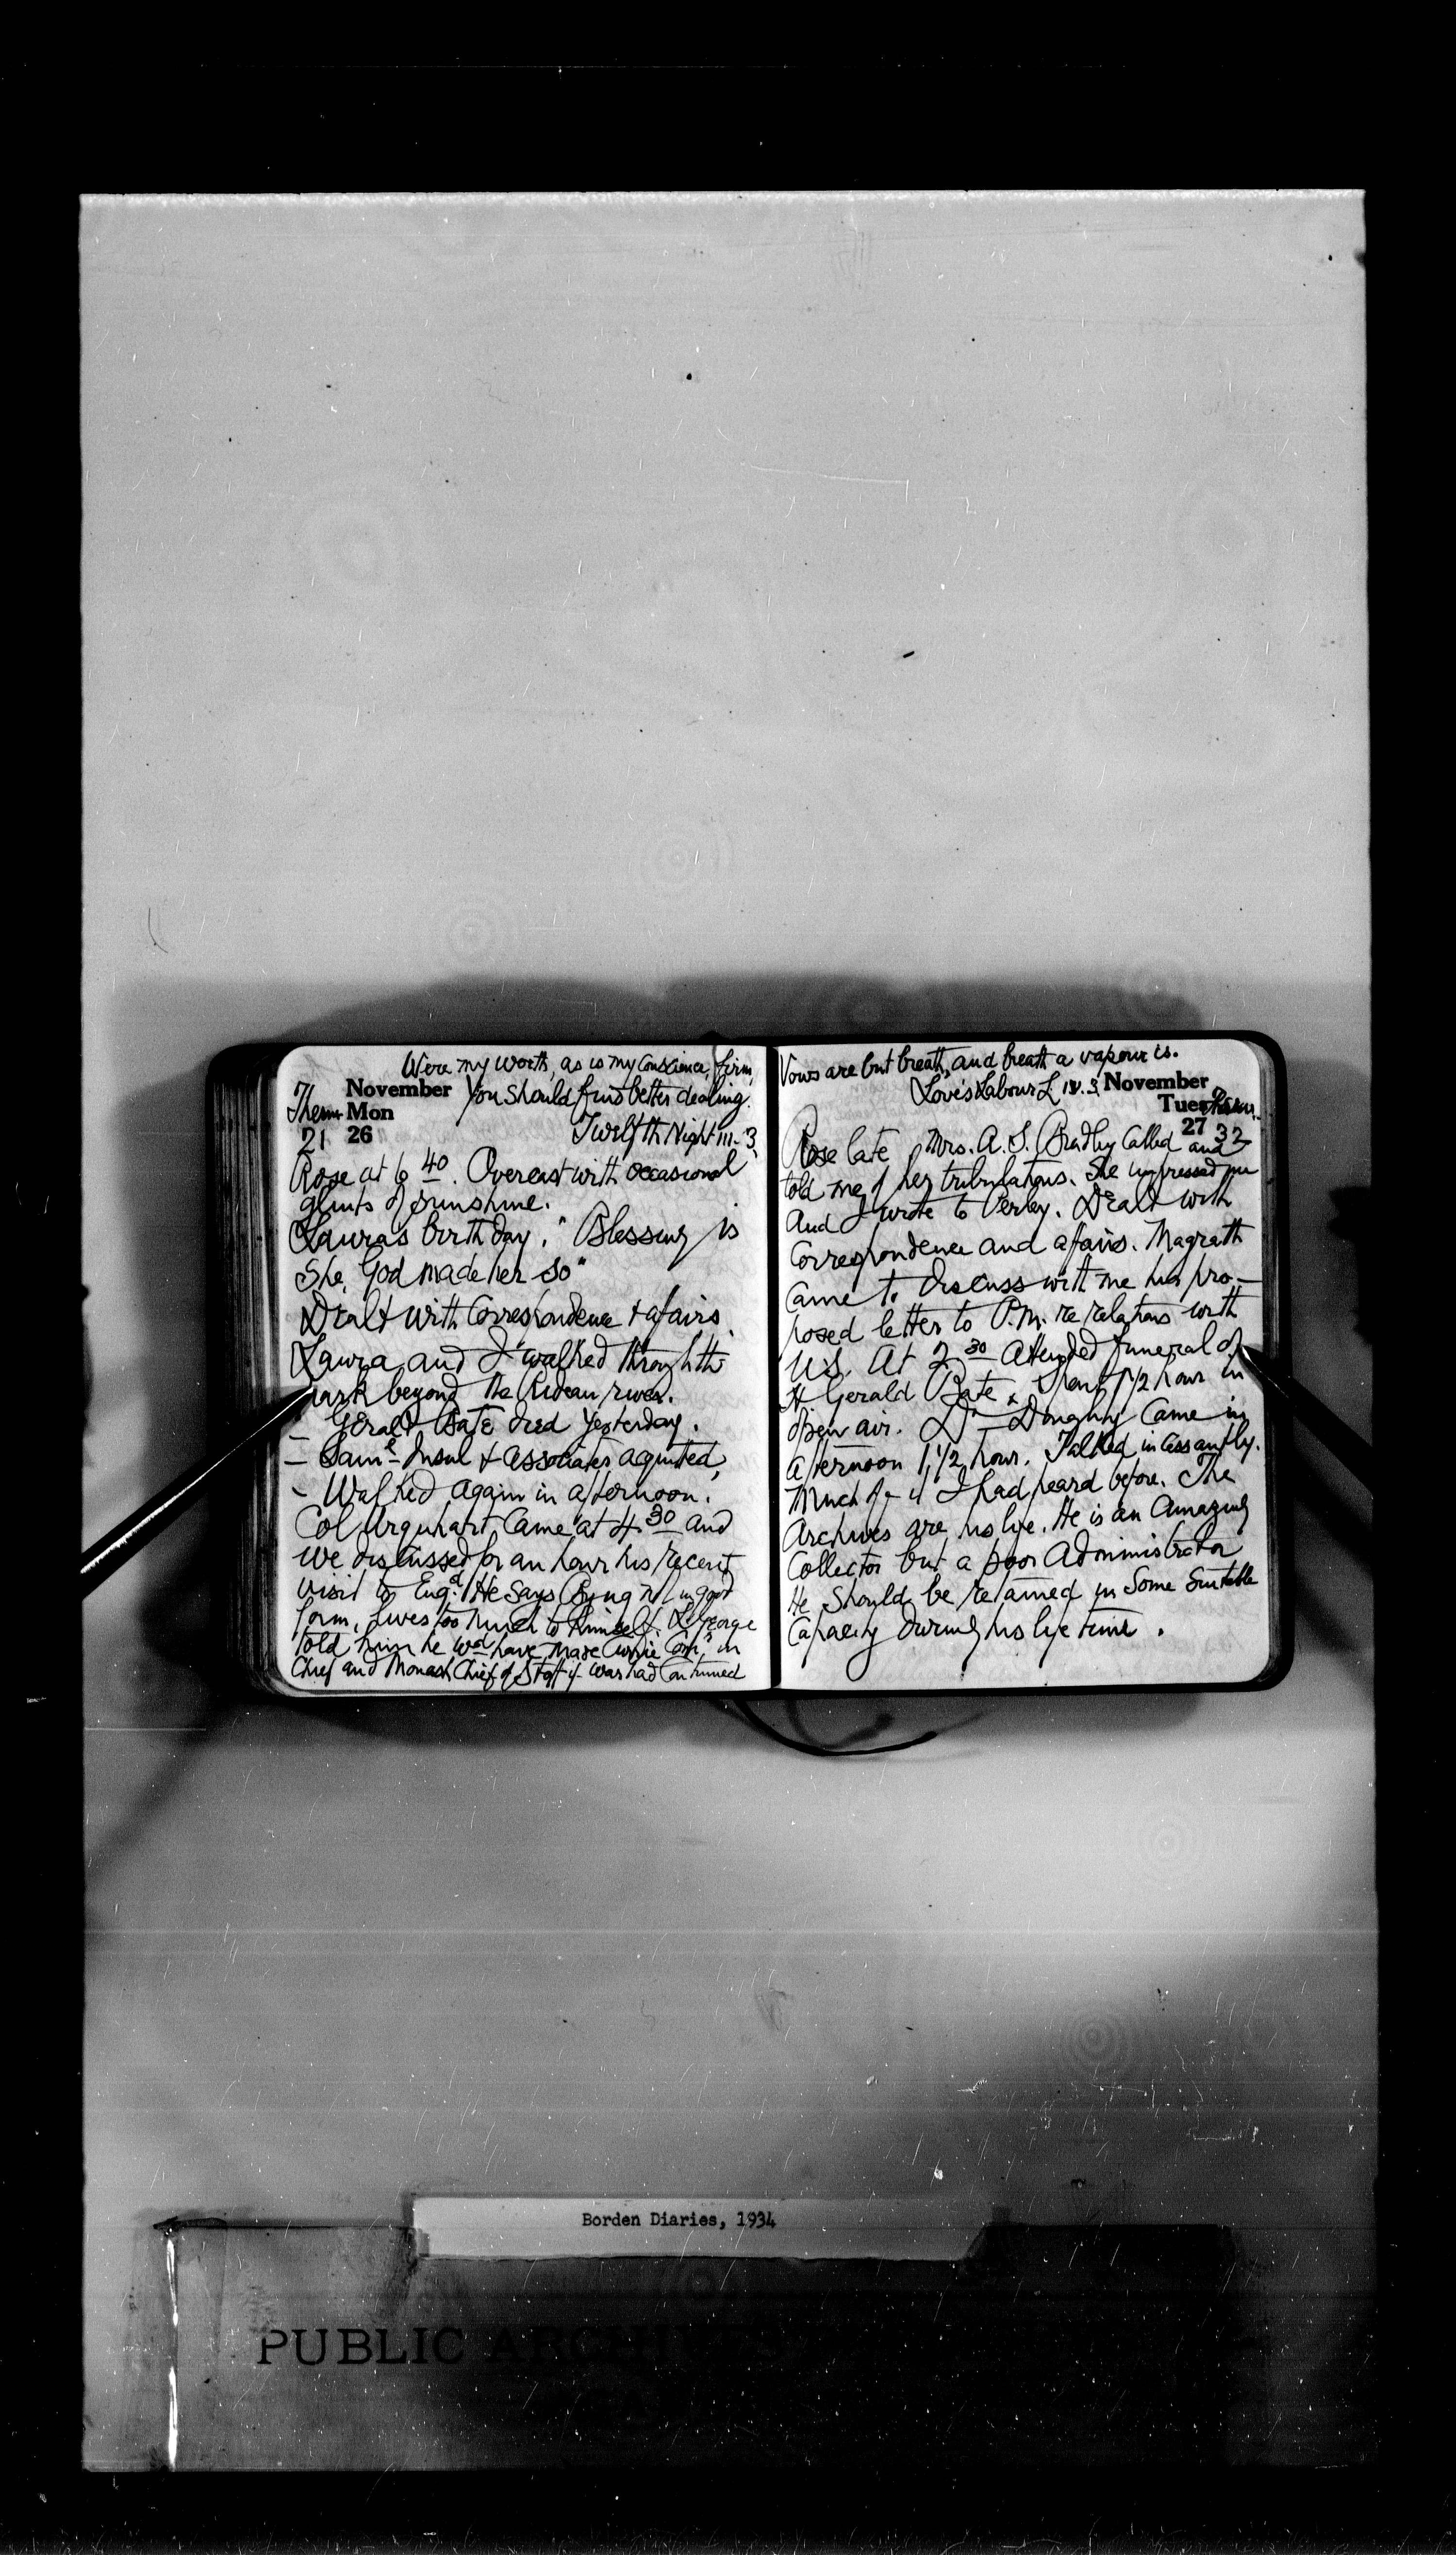 Were my worth, as is my conscience, firm,
November You should find better dealing.
Therm Mon Twelfth Night III-3
21 26
Rose at 6 40. Overcast with occasional
glints of sunshine.
Laura's birthday. "Blessing is
She, God made her so"
Dealt with correspondence & afairs.
Laura and I walked through the
park beyond the Rideau river.
- Gerald Bate died yesterday.
- Saml Insul & associates aquitted,
- Walked again in afternoon.
Col Urquhart came at 4.30 and
we discussed for an hour his recent
visit to Engd. He says Byng not in good
form, lives too much to himself. Ll George
told him he wod have made Currie Comr in
Chief and Monash Chief of Staff if war had continued
Vows are but breath, and breath a vapour is.
Love's Labour L. IV. 3 November
Tues Therm.
27 32
Rose late Mrs. A. S. Bradley called and
told me of her tribulations. She impressed me
and I wrote to Perley. Dealt with
correspondence and afairs. Magrath
came to discuss with me his pro-
posed letter to P.M. re relations with
U.S. At 2 30 attended funeral of
H Gerald Bate. Spent 1 1/2 hour in
open air. Dr Doughty came in
afternoon 1, 1/2 hour. Talked incessantly.
Much of it I had heard before. The
Archives are his life. He is an amazing
collector but a poor administrator
He should be retained in some suitable
capacity during his life time.
Borden Diaries, 1934
PUBLIC ARCHIVES